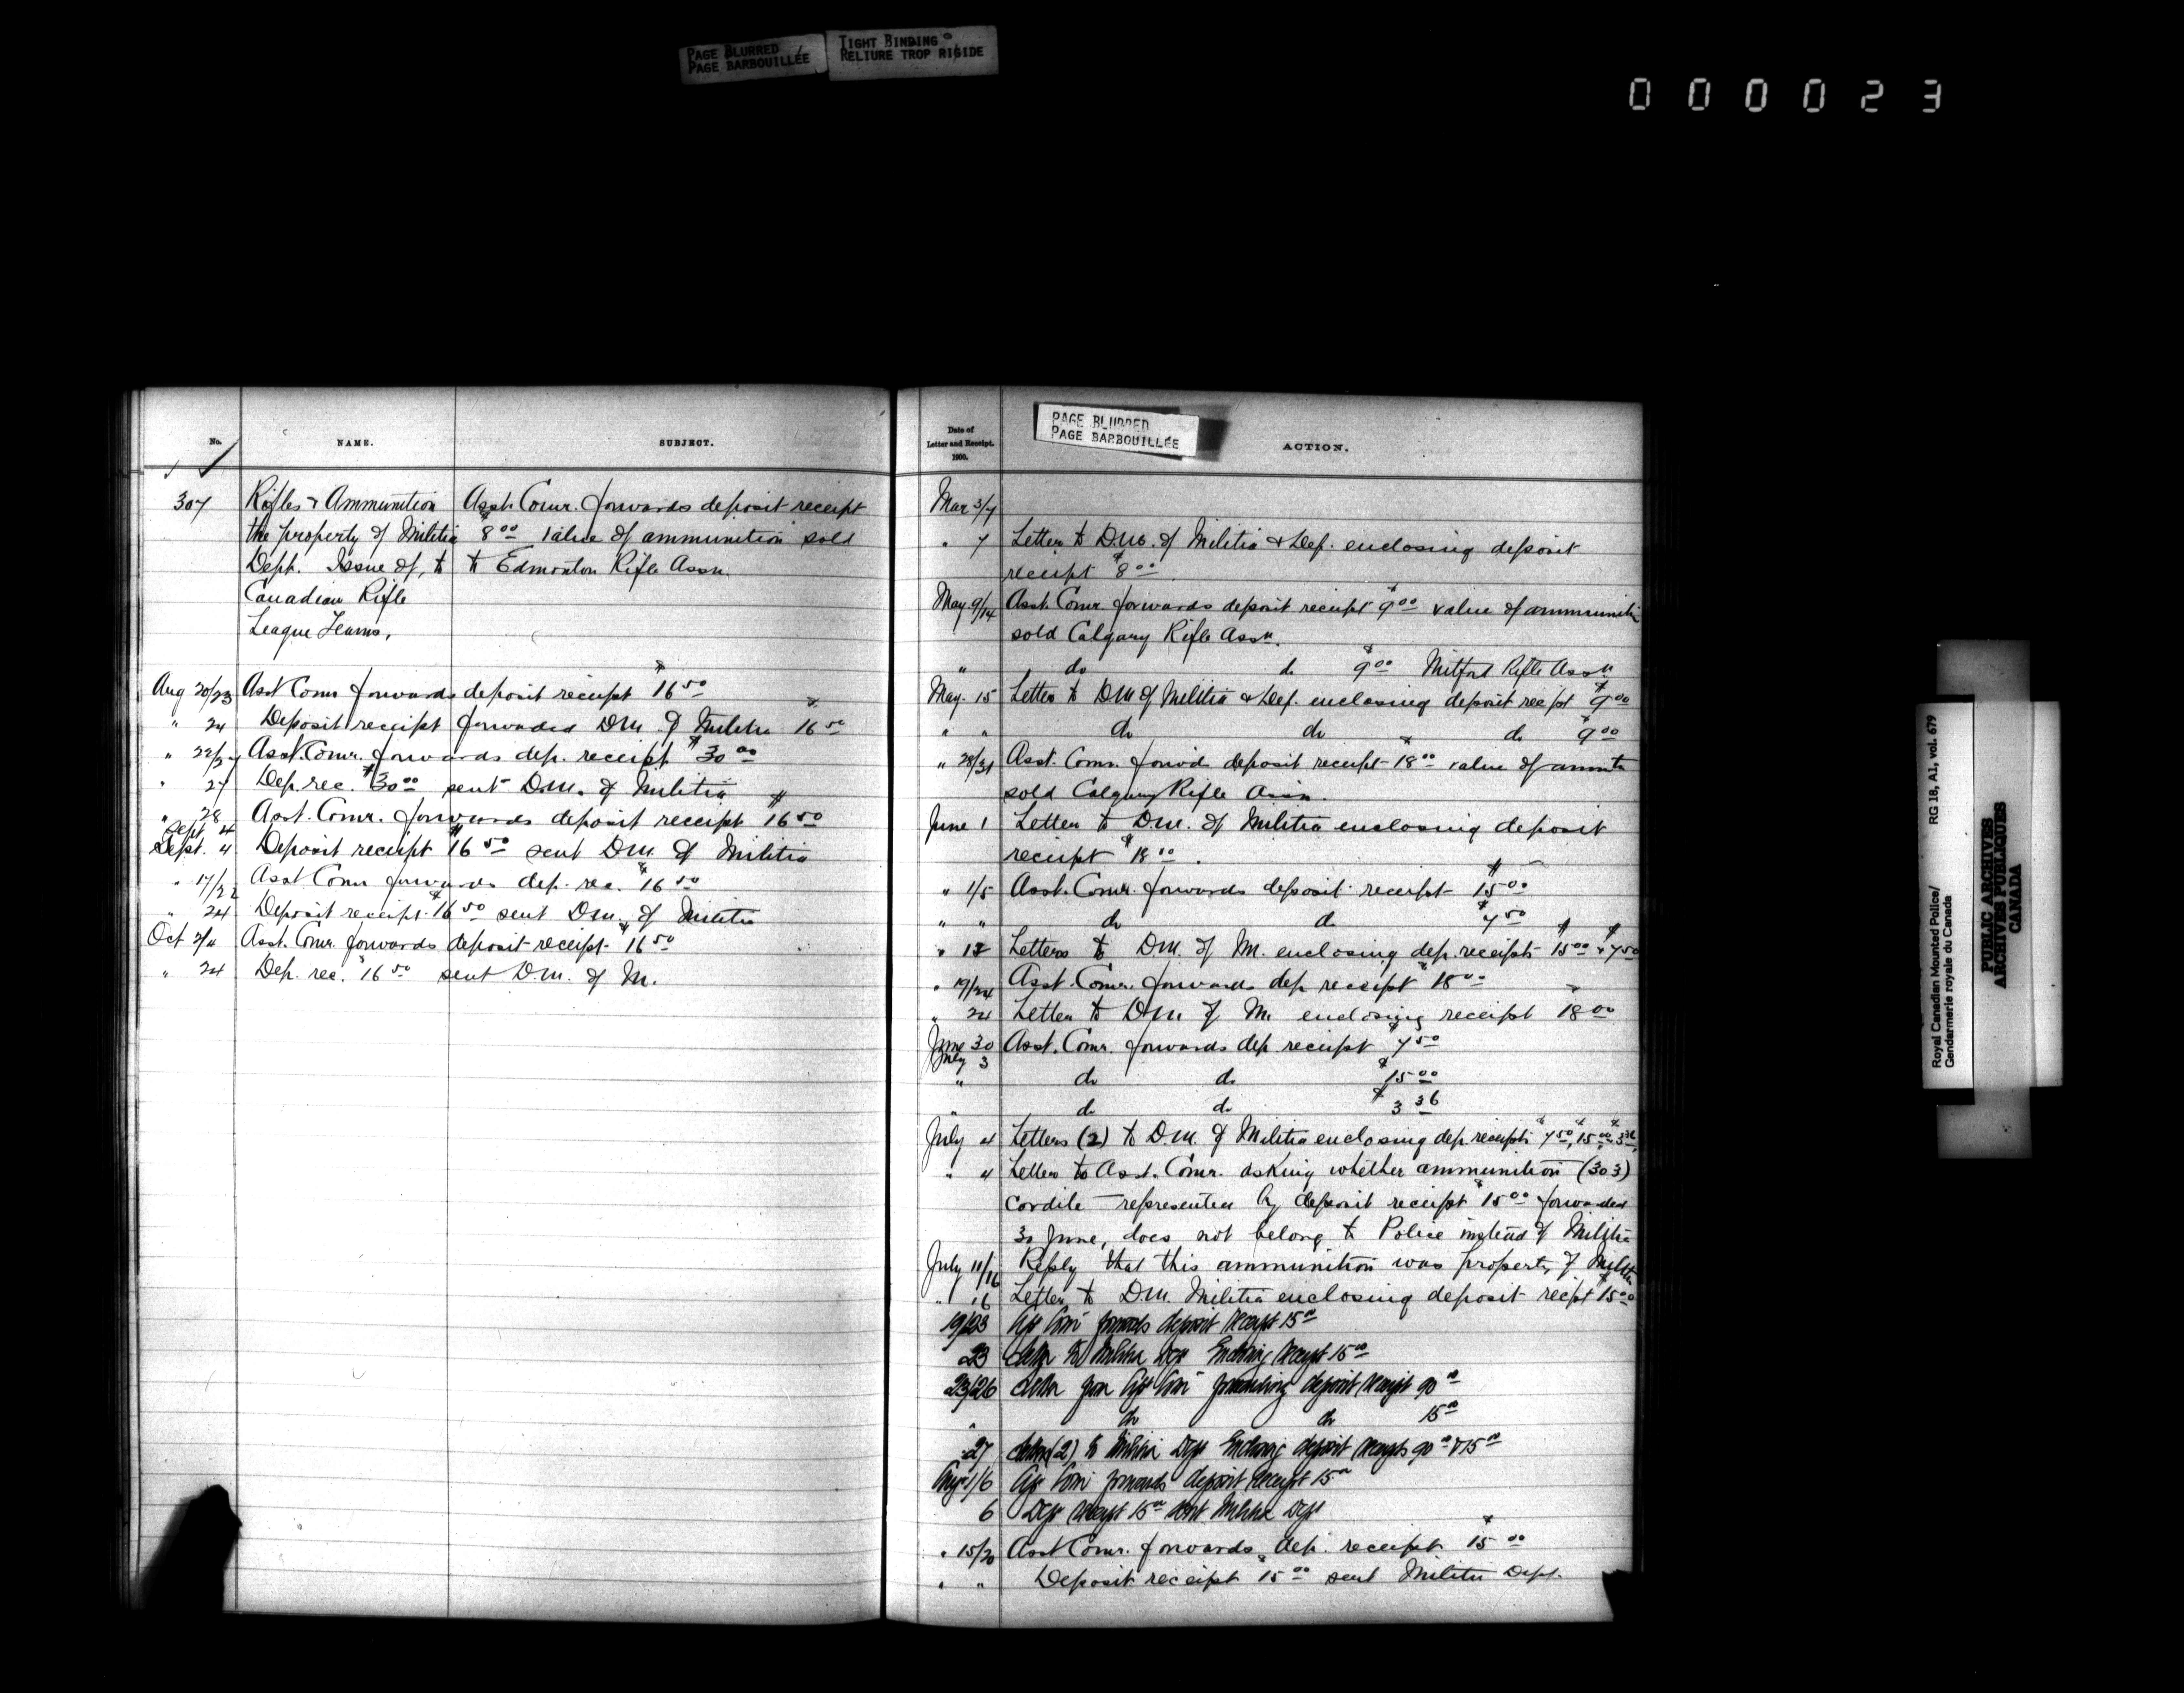 PAGE BLURRED
PAGE BARBOUILLÉE
TIGHT BINDING
RELIURE TROP RIGIDE
000023
No.
NAME.
SUBJECT.
307 Rifles & Ammunition Asst. Comr. forwards deposit receipt
the property of Militia $8 00 value of ammunition sold
Dept. Issue of, to to Edmonton Rifle Assn.
Canadian Rifle
League Teams,
Aug 20/23 Asst Comr forwards deposit receipt $16 50
" 24 Deposit receipt forwarded D.M. of Militia $16 50
" 22/27 Asst. Comr. forwards dep. receipt $30 00
" 27 Dep. rec. $30 00 sent D.M. of Militia
" 28
Sept. 4 Asst. Comr. forwards deposit receipt $16 50
Sept. 4 Deposit receipt $16 50 sent D.M. of Militia
" 17/22 Asst Comr forwards dep. rec. $16 50
" 24 Deposit receipt $16 50 sent D.M. of Militia
Oct 2/4 Asst. Comr. forwards deposit receipt $16 50
" 24 Dep. rec. $16 50 sent D.M. of M.
Date of
Letter and Receipt.
1900.
PAGE BLURRED
PAGE BARBOUILLÉE
ACTION.
Mar 3/7
" 7 Letter to D.M. of Militia & Def. enclosing deposit
receipt $8 00
May 9/14 Asst. Comr. forwards deposit receipt $9 00 value of ammuniti
sold Calgary Rifle Assn.
" do do $9 00 Mitford Rifle Assn
May. 15 Letter to DM of Militia & Def. enclosing deposit recpt $9 00
" " do do do $9 00
" 28/31 Asst. Comr. forwd deposit receipt $18 00 value of ammtn
sold Calgary Rifle Assn.
June 1 Letter to D.M. of Militia enclosing deposit
receipt $18 00.
" 1/5 Asst. Comr. forwards deposit receipt $15 00
" " do do $7 50
" 12 Letters to D.M. of M. enclosing dep. receipts $15 00 & $7 50
" 19/24 Asst. Comr. forwards dep receipt $18 00
" 24 Letter to D.M of M. enclosing receipt $18 00
June 30
July 3 Asst. Comr. forwards dep. receipt $7 50
" do do $15 00
" do do $3 36
July 4 Letters (2) to D.M. of Militia enclosing dep. receipts $7 50, $15 00, $3 36
" 4 Letter to Asst. Comr. asking whether ammunition (303)
cordite represented by deposit receipt $15 00 forwarded
30 June, does not belong to Police instead of Militia
July 11/16 Reply that this ammunition was property of Militia
" 16 Letter to D.M. Militia enclosing deposit recpt $15 00
19/23 Asst Comr forwards deposit receipt 15 00
23 Letter to Militia Dept Enclosing receipt 15 00
23/26 Letter from Asst Comr forwarding deposit receipt 90 00
" do do 15 00
27 Letters (2) to Militia Dept Enclosing deposit receipts 90 00 & 15 00
Aug 1/6 Asst Comr forwards deposit receipt 15 00
6 Dept receipt 15 00 sent Militia Dept
" 15/20 Asst Comr. forwards dep. receipt $15 00
" " Deposit receipt $15 00 sent Militia Dept.
Royal Canadian Mounted Police/
Gendarmerie royale du Canada
RG 18, A1, vol. 679
PUBLIC ARCHIVES
ARCHIVES PUBLIQUES
CANADA